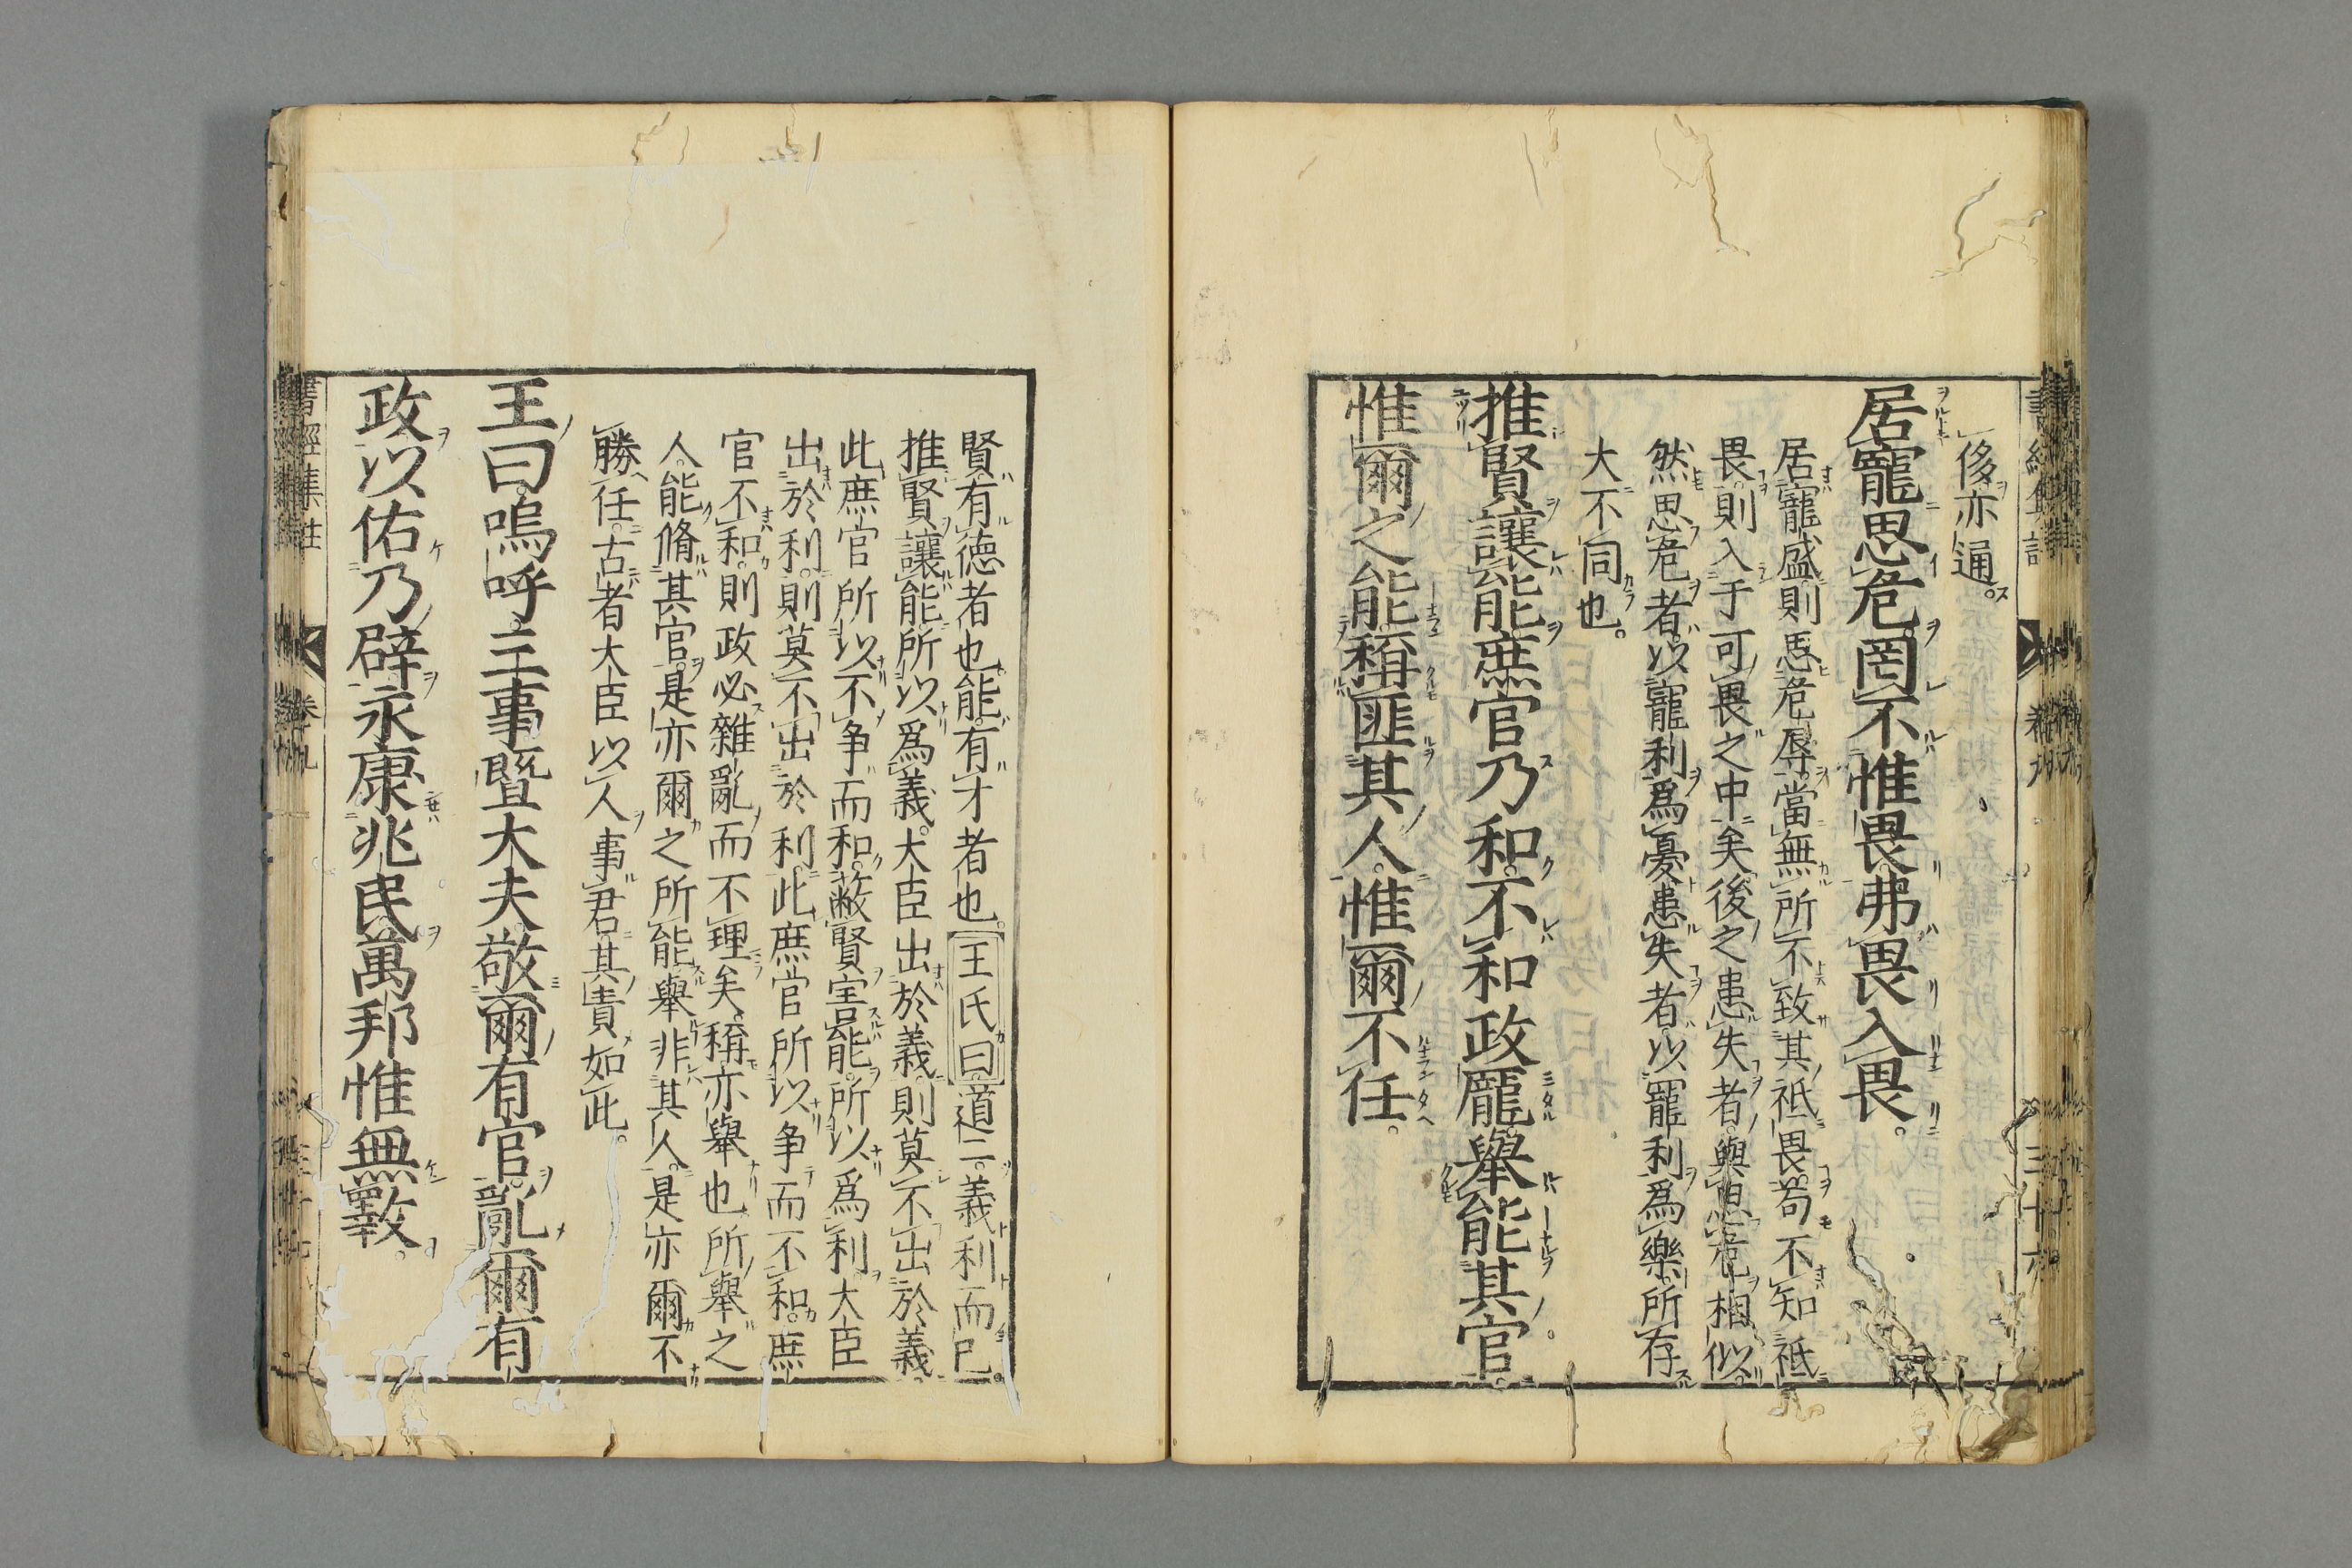 侈亦通。
居寵思危罔不惟畏弗畏入畏。
居寵盛則思危辱。當無所不致其祗畏。苟不知祗
畏。則入于可畏之中矣。後之患失者。與思危相似。
然思危者。以寵利爲憂。患失者。以寵利爲樂。所存
大不同也。
推賢讓能庶官乃和。不和政厖。舉能其官。
惟爾之能。稱匪其人。惟爾不任。
書經集註 卷九 三十六
賢有德者也。能有才者也。王氏曰。道二。義利而已。
推賢讓能。所以爲義。大臣出於義。則莫不出於義。
此庶官所以不争而和。蔽賢害能。所以爲利。大臣
出於利。則莫不出於利。此庶官所以争而不和。庶
官不和。則政必雜亂而不理矣。稱亦舉也。所舉之
人。能脩其官。是亦爾之所能。舉非其人。是亦爾不
勝任。古者大臣以人事君。其責如此。
王曰。嗚呼。三事暨大夫。敬爾有官。亂爾有
政以佑乃辟。永康兆民。萬邦惟無斁。
書經集註 卷九